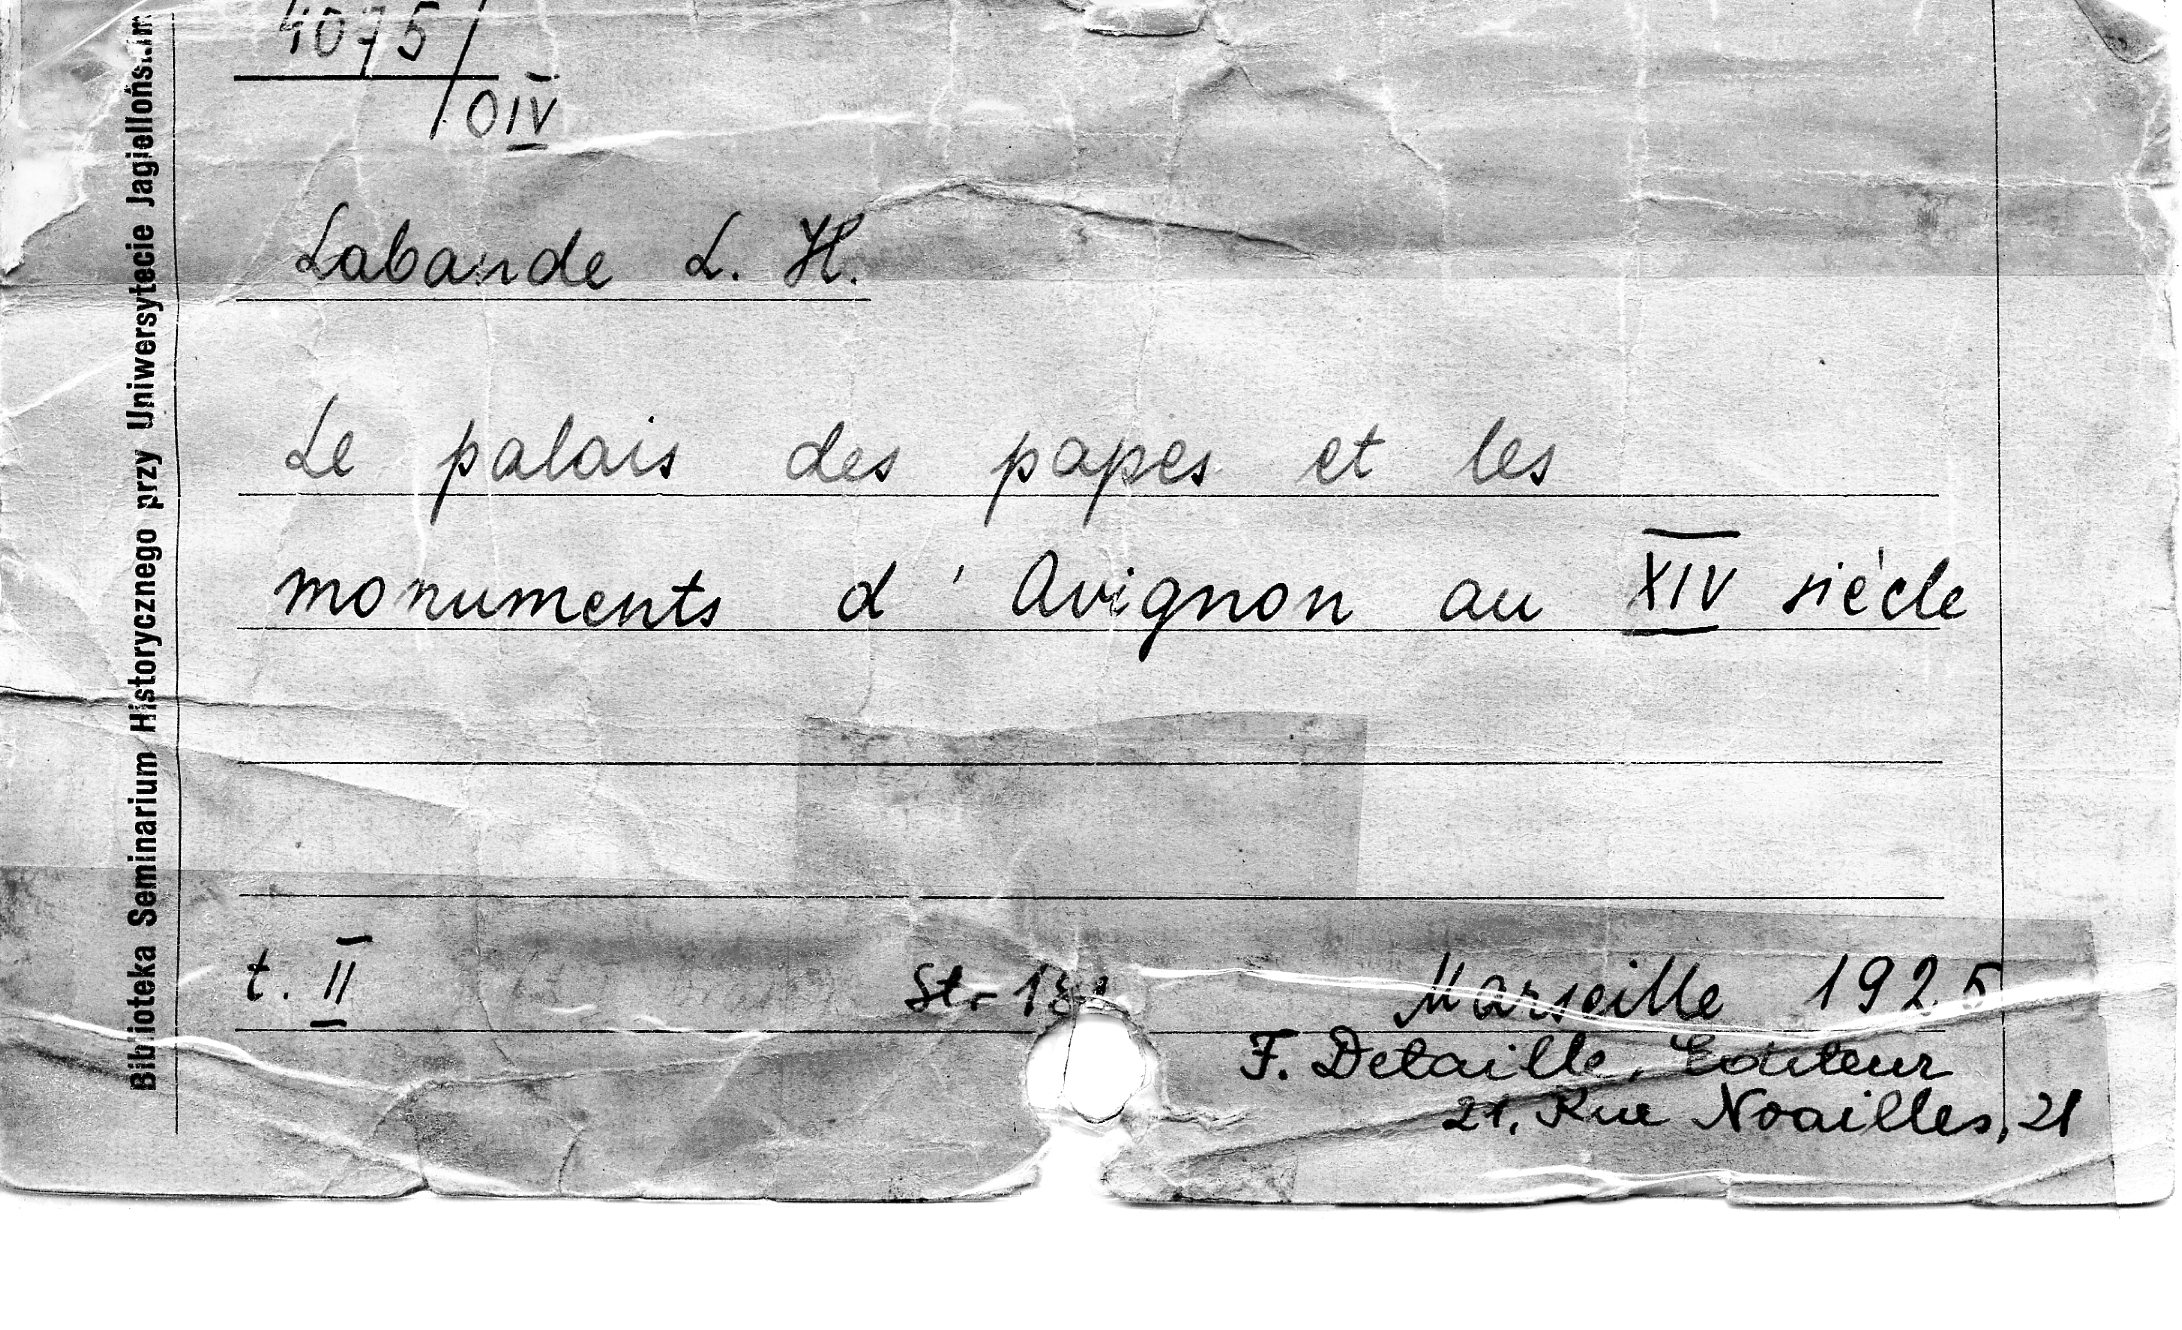 4075/
OIV
Labande L. H.
Le palais des papes et les
monuments d'Avignon au XIV siécle
t. II Str Marseille 1925
F. Detaille, Editeur
21, Rue Noailles, 21
Biblioteka Seminarium Historycznego przy Uniwersytecie Jagiellońs.im